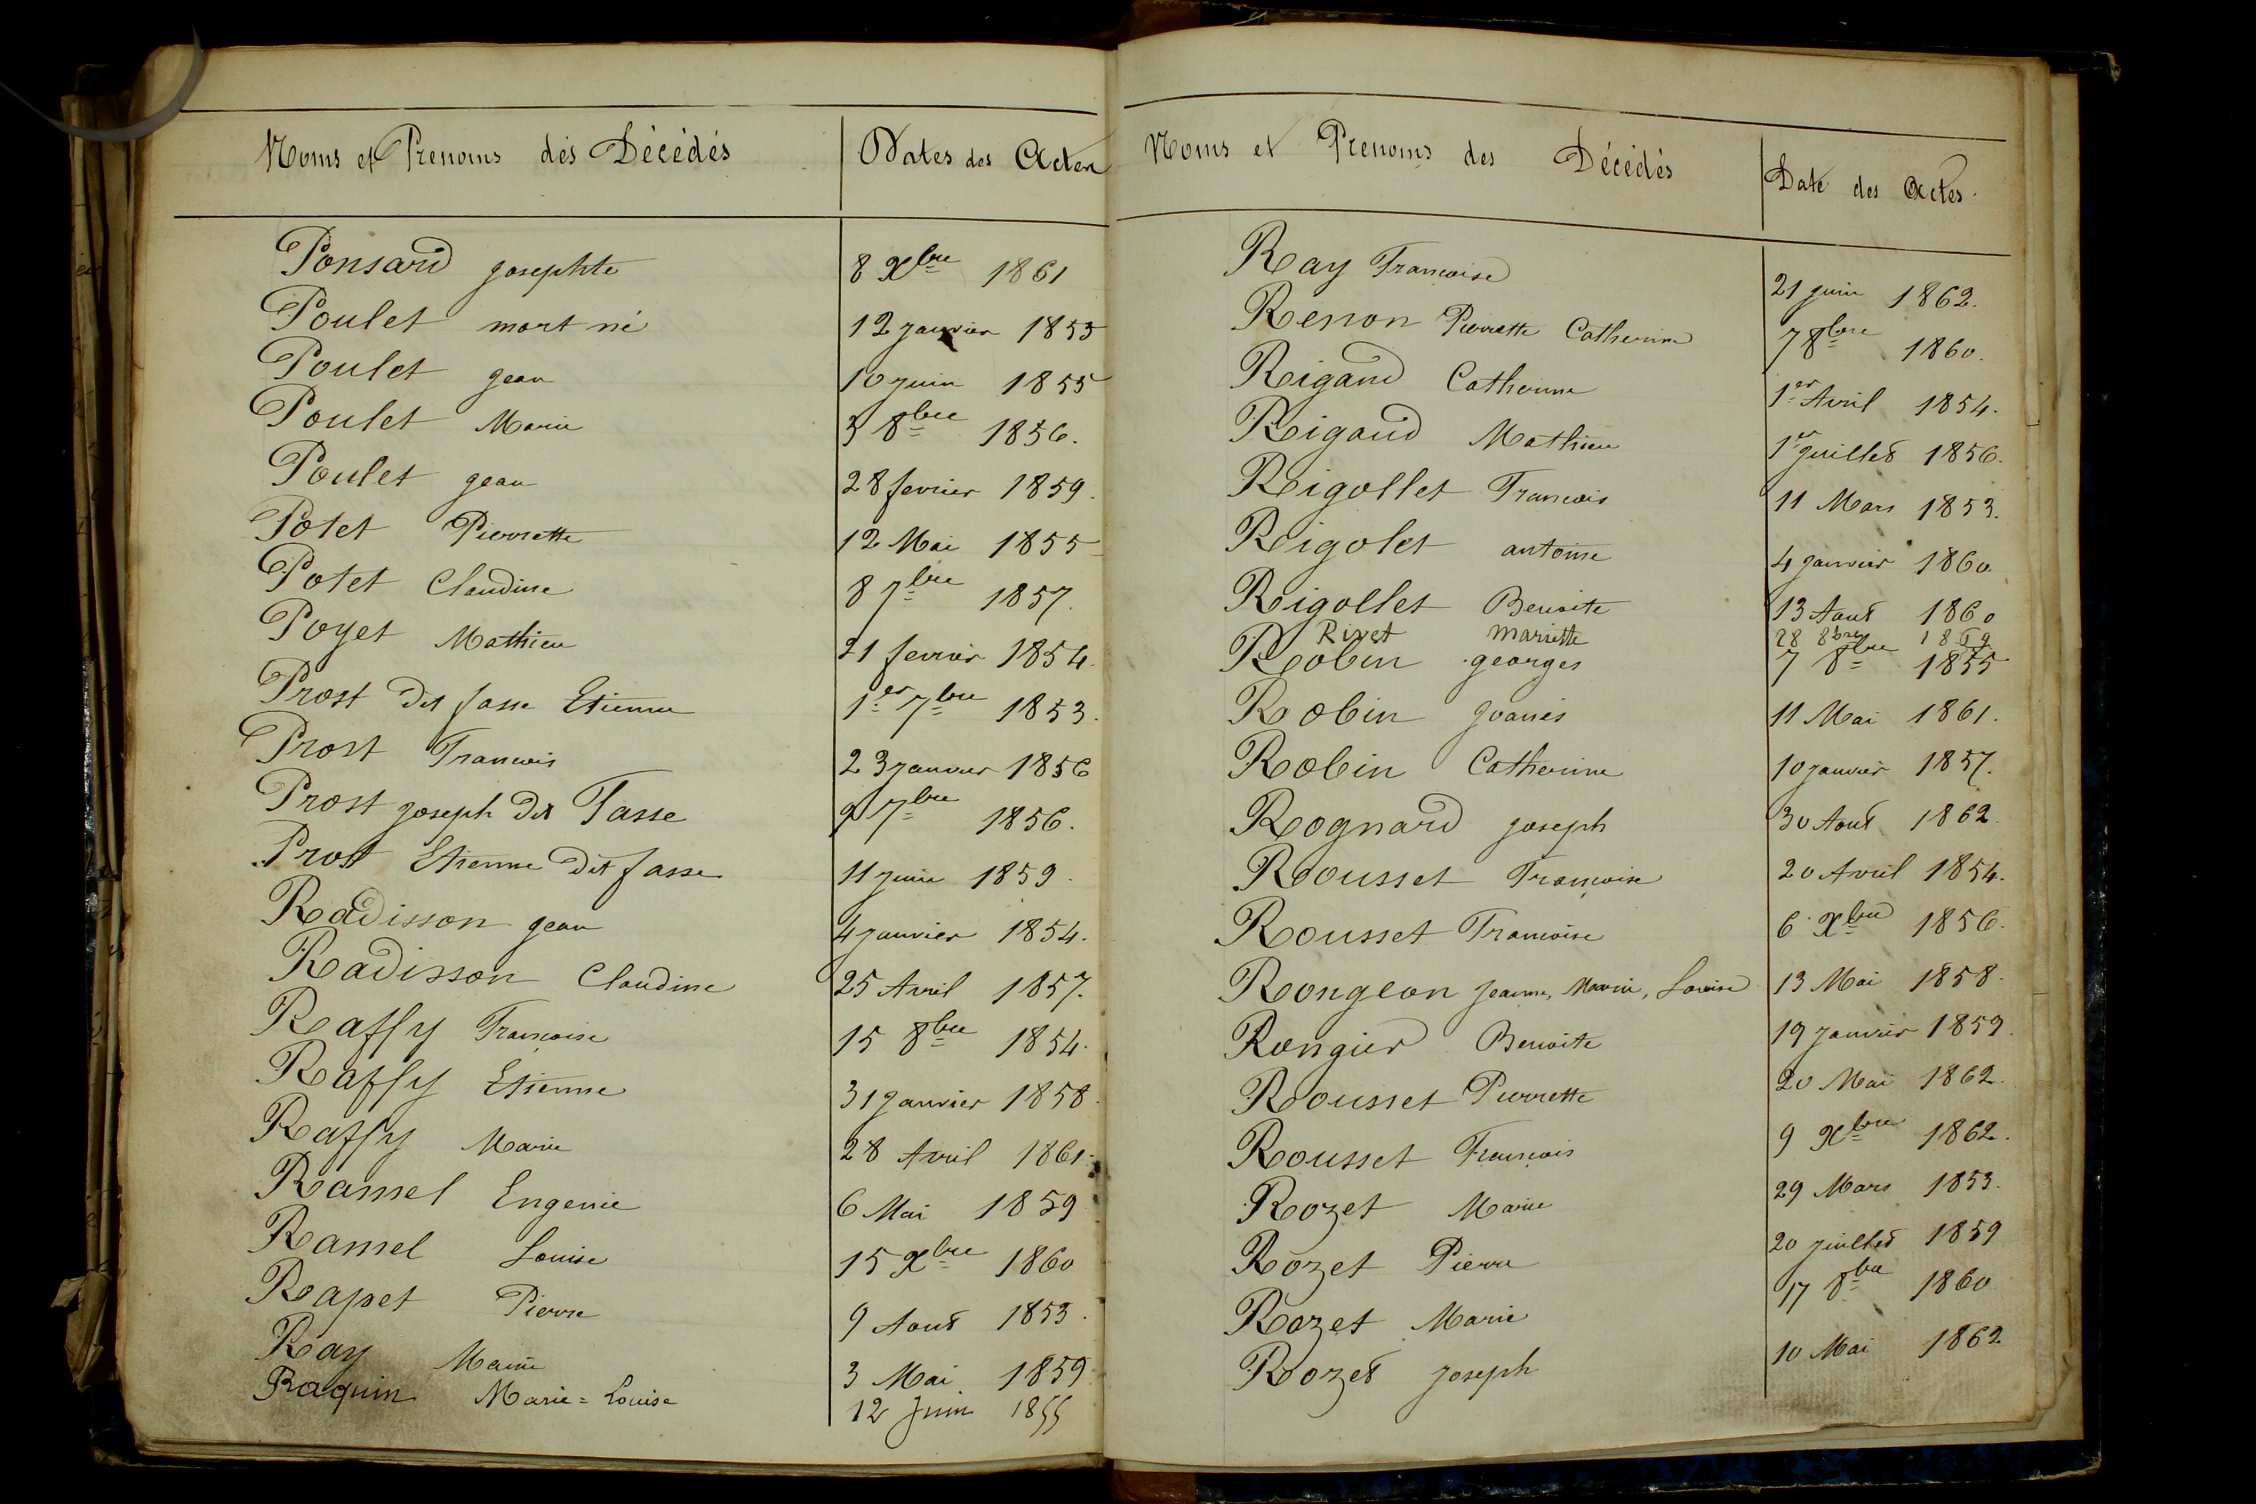 Noms et Prenoms des Décédés Dates des Actes
Ponsard josephte 8 Xbre 1861
Poulet mort né 12 janvier 1853
Poulet jean 10 juin 1855
Poulet Marie 3 8bre 1856.
Poulet jean 28 fevrier 1859.
Potet Pierrette 12 Mai 1855
Potet Claudine 8 7bre 1857.
Poyet Mathieu 21 fevrier 1854.
Prost dit fasse Etienne 1er 7bre 1853.
Prost Francois 23 janvier 1856
Prost joseph dit Tasse 7bre 1856.
Prost Etienne dit fasse 11 juin 1859.
Radisson jean 4 janvier 1854.
Radisson Claudine 25 Avril 1857.
Raffy Françoise 15 8bre 1854.
Raffy Etienne 31 janvier 1858.
Raffy Marie 28 Avril 1861.
Ramel Eugenie 6 Mai 1859
Ramel Louise 15 Xbre 1860
Rapet Pierre 9 Aout 1853.
Ray Marie 3 Mai 1859
Raquin Marie=Louise 12 Juin 1855
Noms et Prenoms des Décédés Date des Actes.
Ray Francoise 21 juin 1862.
Renon Pierrette Catherine 7 8bre 1860.
Rigaud Catherine 1er Avril 1854.
Rigaud Mathieu 1er juillet 1856.
Rigollet Francois 11 Mars 1853.
Rigolet antoine 4 janvier 1860
Rigollet Benoite 13 Aout 1860
Rivet Mariette 28 8bre 1859
Robin georges 7 8bre 1855
Robin joanès 11 Mai 1861.
Robin Catherine 10 janvier 1857.
Rognard joseph 30 Aout 1862.
Rousset Françoise 20 Avril 1854.
Rousset Francoise 6 Xbre 1856.
Rongeon jeanne, Marie, Louise 13 Mai 1858.
Rongier Benoite 19 janvier 1859.
Rousset Pierrette 20 Mai 1862.
Rousset François 9 Xbre 1862.
Rozet Marie 29 Mars 1853.
Rozet Pierre 20 juillet 1859
Rozet Marie 17 8bre 1860
Rozet joseph 10 Mai 1862